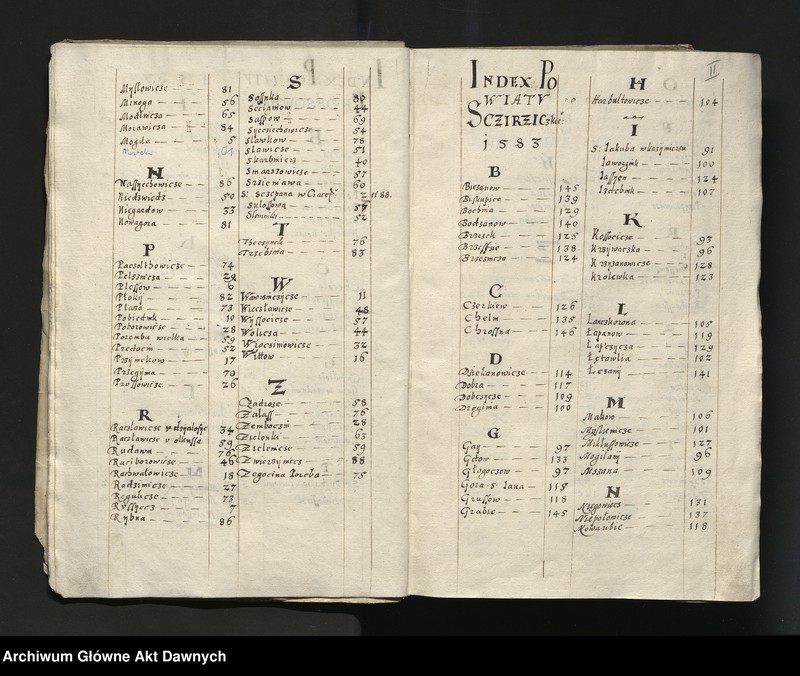 Myslowicze 81
Minoga 56
Modlnicza 65
Morawicza 84
Mogila 5
N
Nassyechowicze 86
Niedswiedz 50
Niegardow 33
Nowagora 81
P
Paczolthowicze 74
Pelssnicza 28
Plessow 6
Ploky 82
Plaza 73
Pobiednik 10
Poborowicze 28
Poremba wielka 59
Prandocin 52
Przybyslawice 17
Przeginia 70
Prossowicze 26
R
Raczlawicze 34
Raczlawicze v olkussa 59
Rudawa 76
Raciborowicze 46
Rachwalowicze 18
Radzimicze 27
Regulicze 73
Ryssyecz 7
Rybna 86
S
Sossnka 80
Secziniow 44
Saspow 69
Syeciechowicze 54
Slawkow 78
Slawicze 51
Skarbmierz 40
Smarzowicze 57
Srzeniawa 60
S: Sczepana w Craco 2 et 88.
Sulossowa 57
Slomniki 52
T
Thecznek 76
Trzebinia 83
W
Wawrzinczicze 11
Wieczlawicze 48
Wyssocicze 57
Wolicza 44
Wrocimowicze 32
Witow 16
Z
Zadroze 58
Zalass 76
Zemboczin 28
Zielonki 63
Zielencze 59
Zwierziniecz 88
Zegocina Poreba 75
INDEX PO
WIATV
SCZIRZICZkie
1583
B
Biezanow 145
Biskupice 139
Bochnia 129
Bodzanow 140
Brzesek 125
Brzessne 138
Brzesnicza 124
C
Czerniew 126
Chelm 135
Chrossna 146
D
Dziekanowicze 114
Dobra 117
Dobczycze 109
Droginia 100
G
Gay 97
Gdow 133
Glogoczow 97
Gora S: Iana 115
Grussow 118
Grabie 145
II
H
Harbultowicze 104
I
S: Jakuba w kazymierzu 91
Jawornik 100
Jassyen 124
Isdebnik 107
K
Kossocicze 93
Krzywaczka 96
Krzyzanowicze 128
Krolewka 123
L
Lanczkorona 105
Lapanow 119
Lapczycza 129
Lętownia 102
Lezany 141
M
Makow 106
Myslienicze 101
Miklussowicze 127
Mogilany 96
Mszana 109
N
Niegowiecz 131
Niepolomicze 137
Nowarubie 118
Archiwum Główne Akt Dawnych